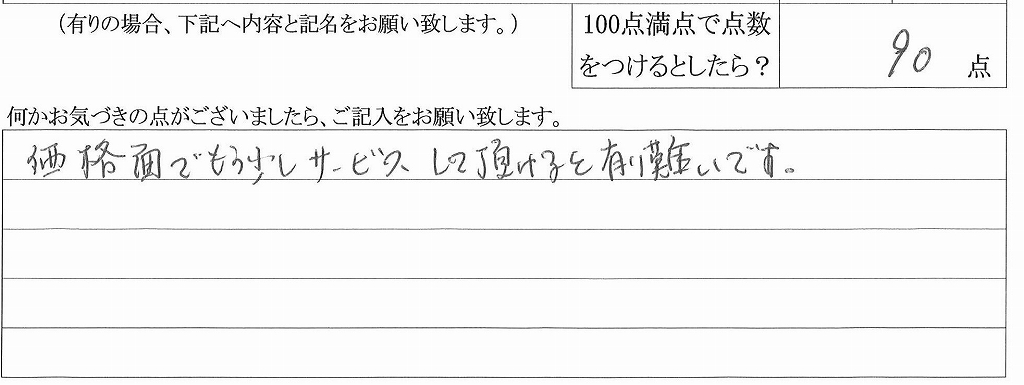 （有りの場合、下記へ内容と記名をお願い致します。）
100点満点で点数
をつけるとしたら？
90 点
何かお気づきの点がございましたら、ご記入をお願い致します。
価格面でもう少しサービスして頂けると有難いです。